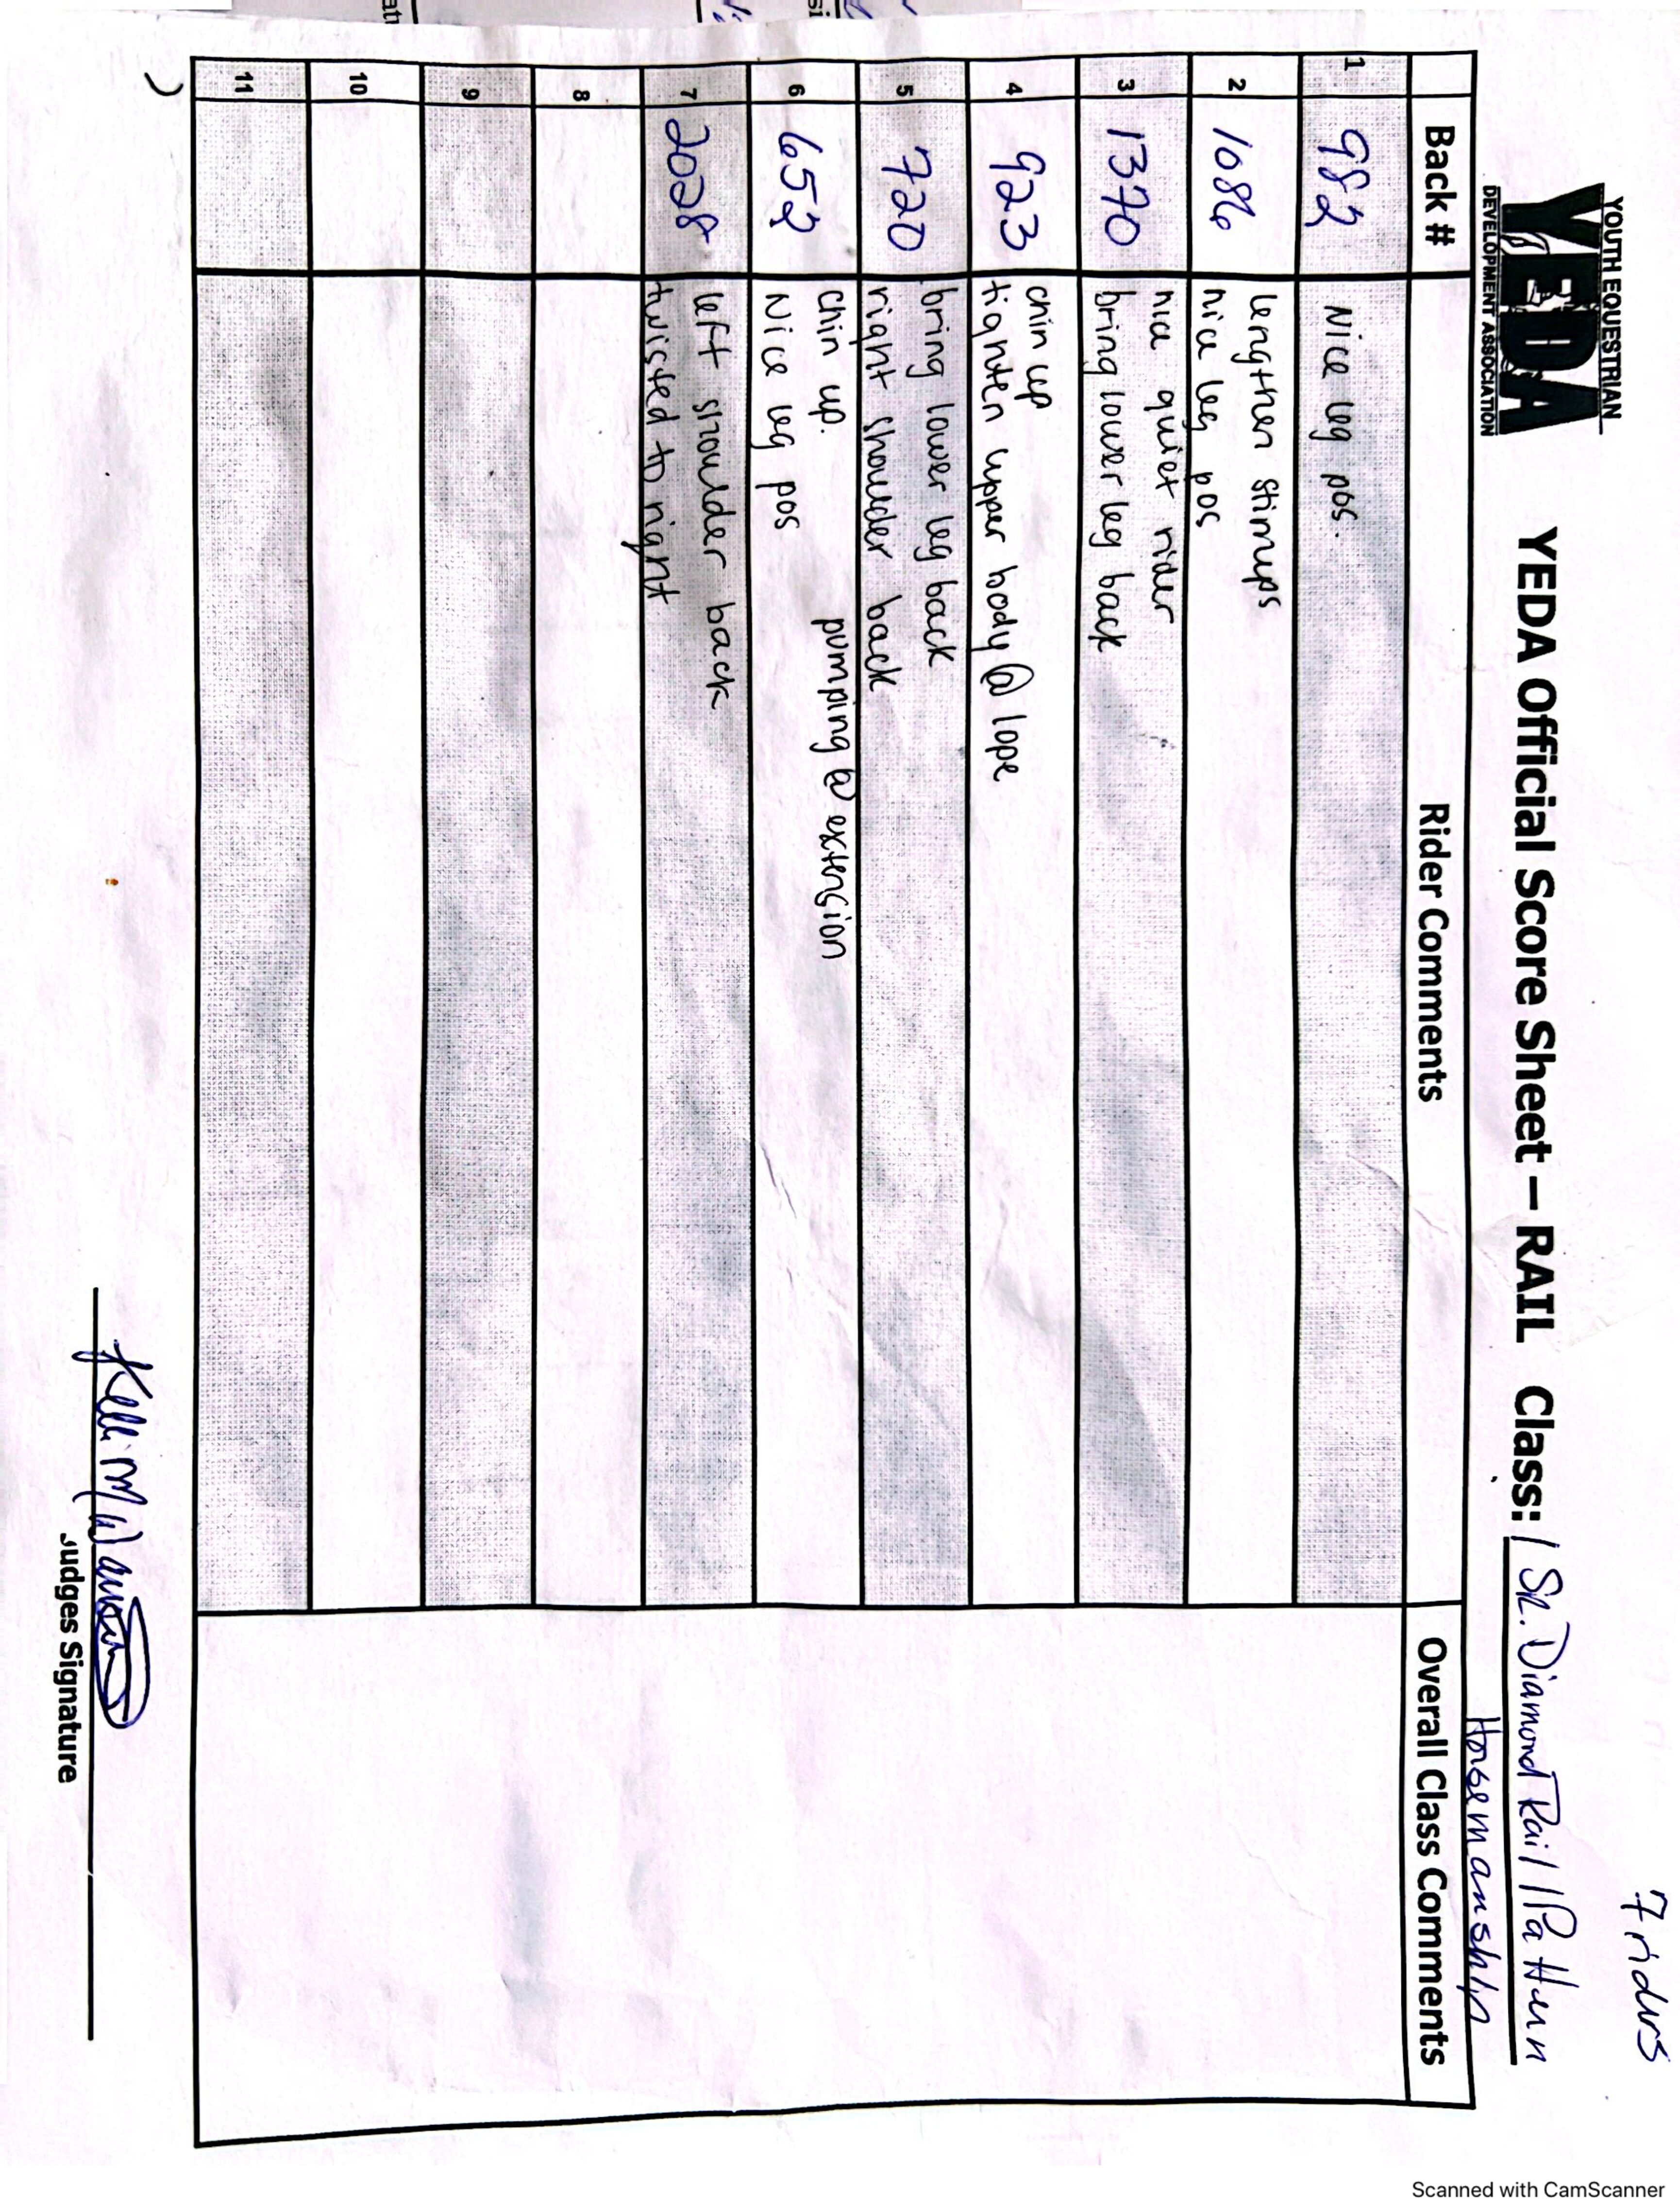 7 riders
YOUTH EQUESTRIAN
YEDA
DEVELOPMENT ASSOCIATION
YEDA Official Score Sheet – RAIL Class: Sr. Diamond Rail / Pattern
Horsemanship
Back # Rider Comments Overall Class Comments
1 982 Nice leg pos.
2 1086 lengthen stirrups
nice leg pos
3 1370 nice quiet rider
bring lower leg back
4 923 chin up
tighten upper body @ lope
5 720 bring lower leg back
right shoulder back
6 652 chin up. pumping @ extension
Nice leg pos
7 2028 left shoulder back
twisted to right
8
9
10
11
Kelli M
Judges Signature
Scanned with CamScanner